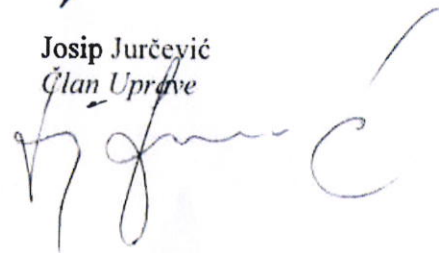 Josip Jurčević
Član Uprave